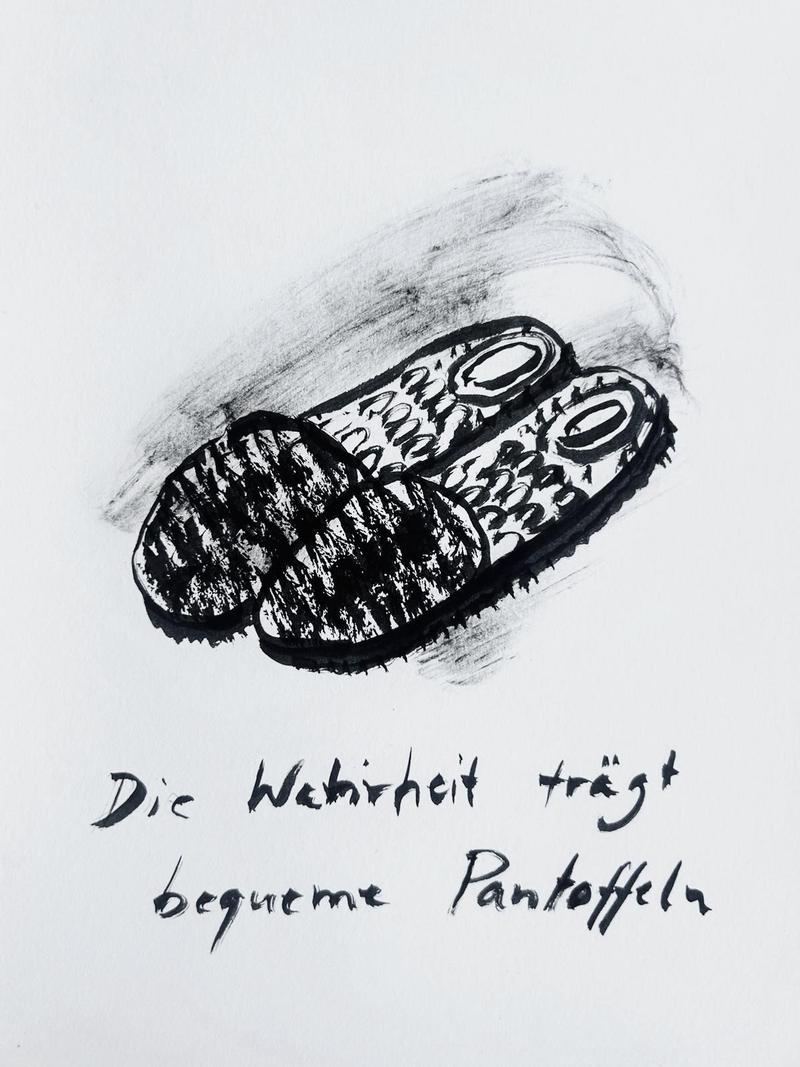 Die Wahrheit trägt
bequeme Pantoffeln